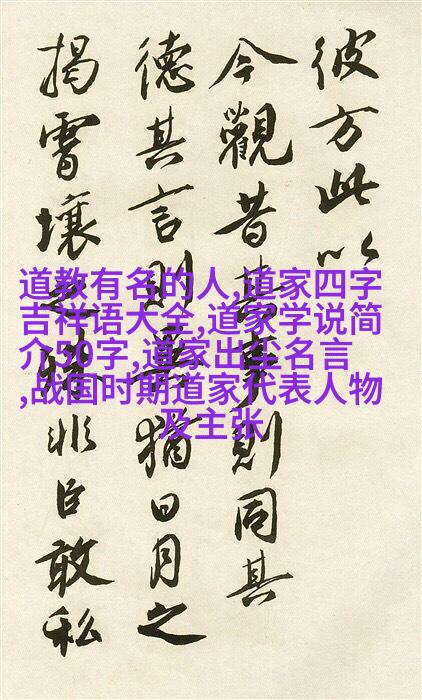 彼方此以
今觀昔事則同其
德其言則異猶日月之
揭霄壤之殊非臣敢私
道教有名的人,道家四字
吉祥语大全,道家学说简
介50字,道家出尘名言
,战国时期道家代表人物
及主张